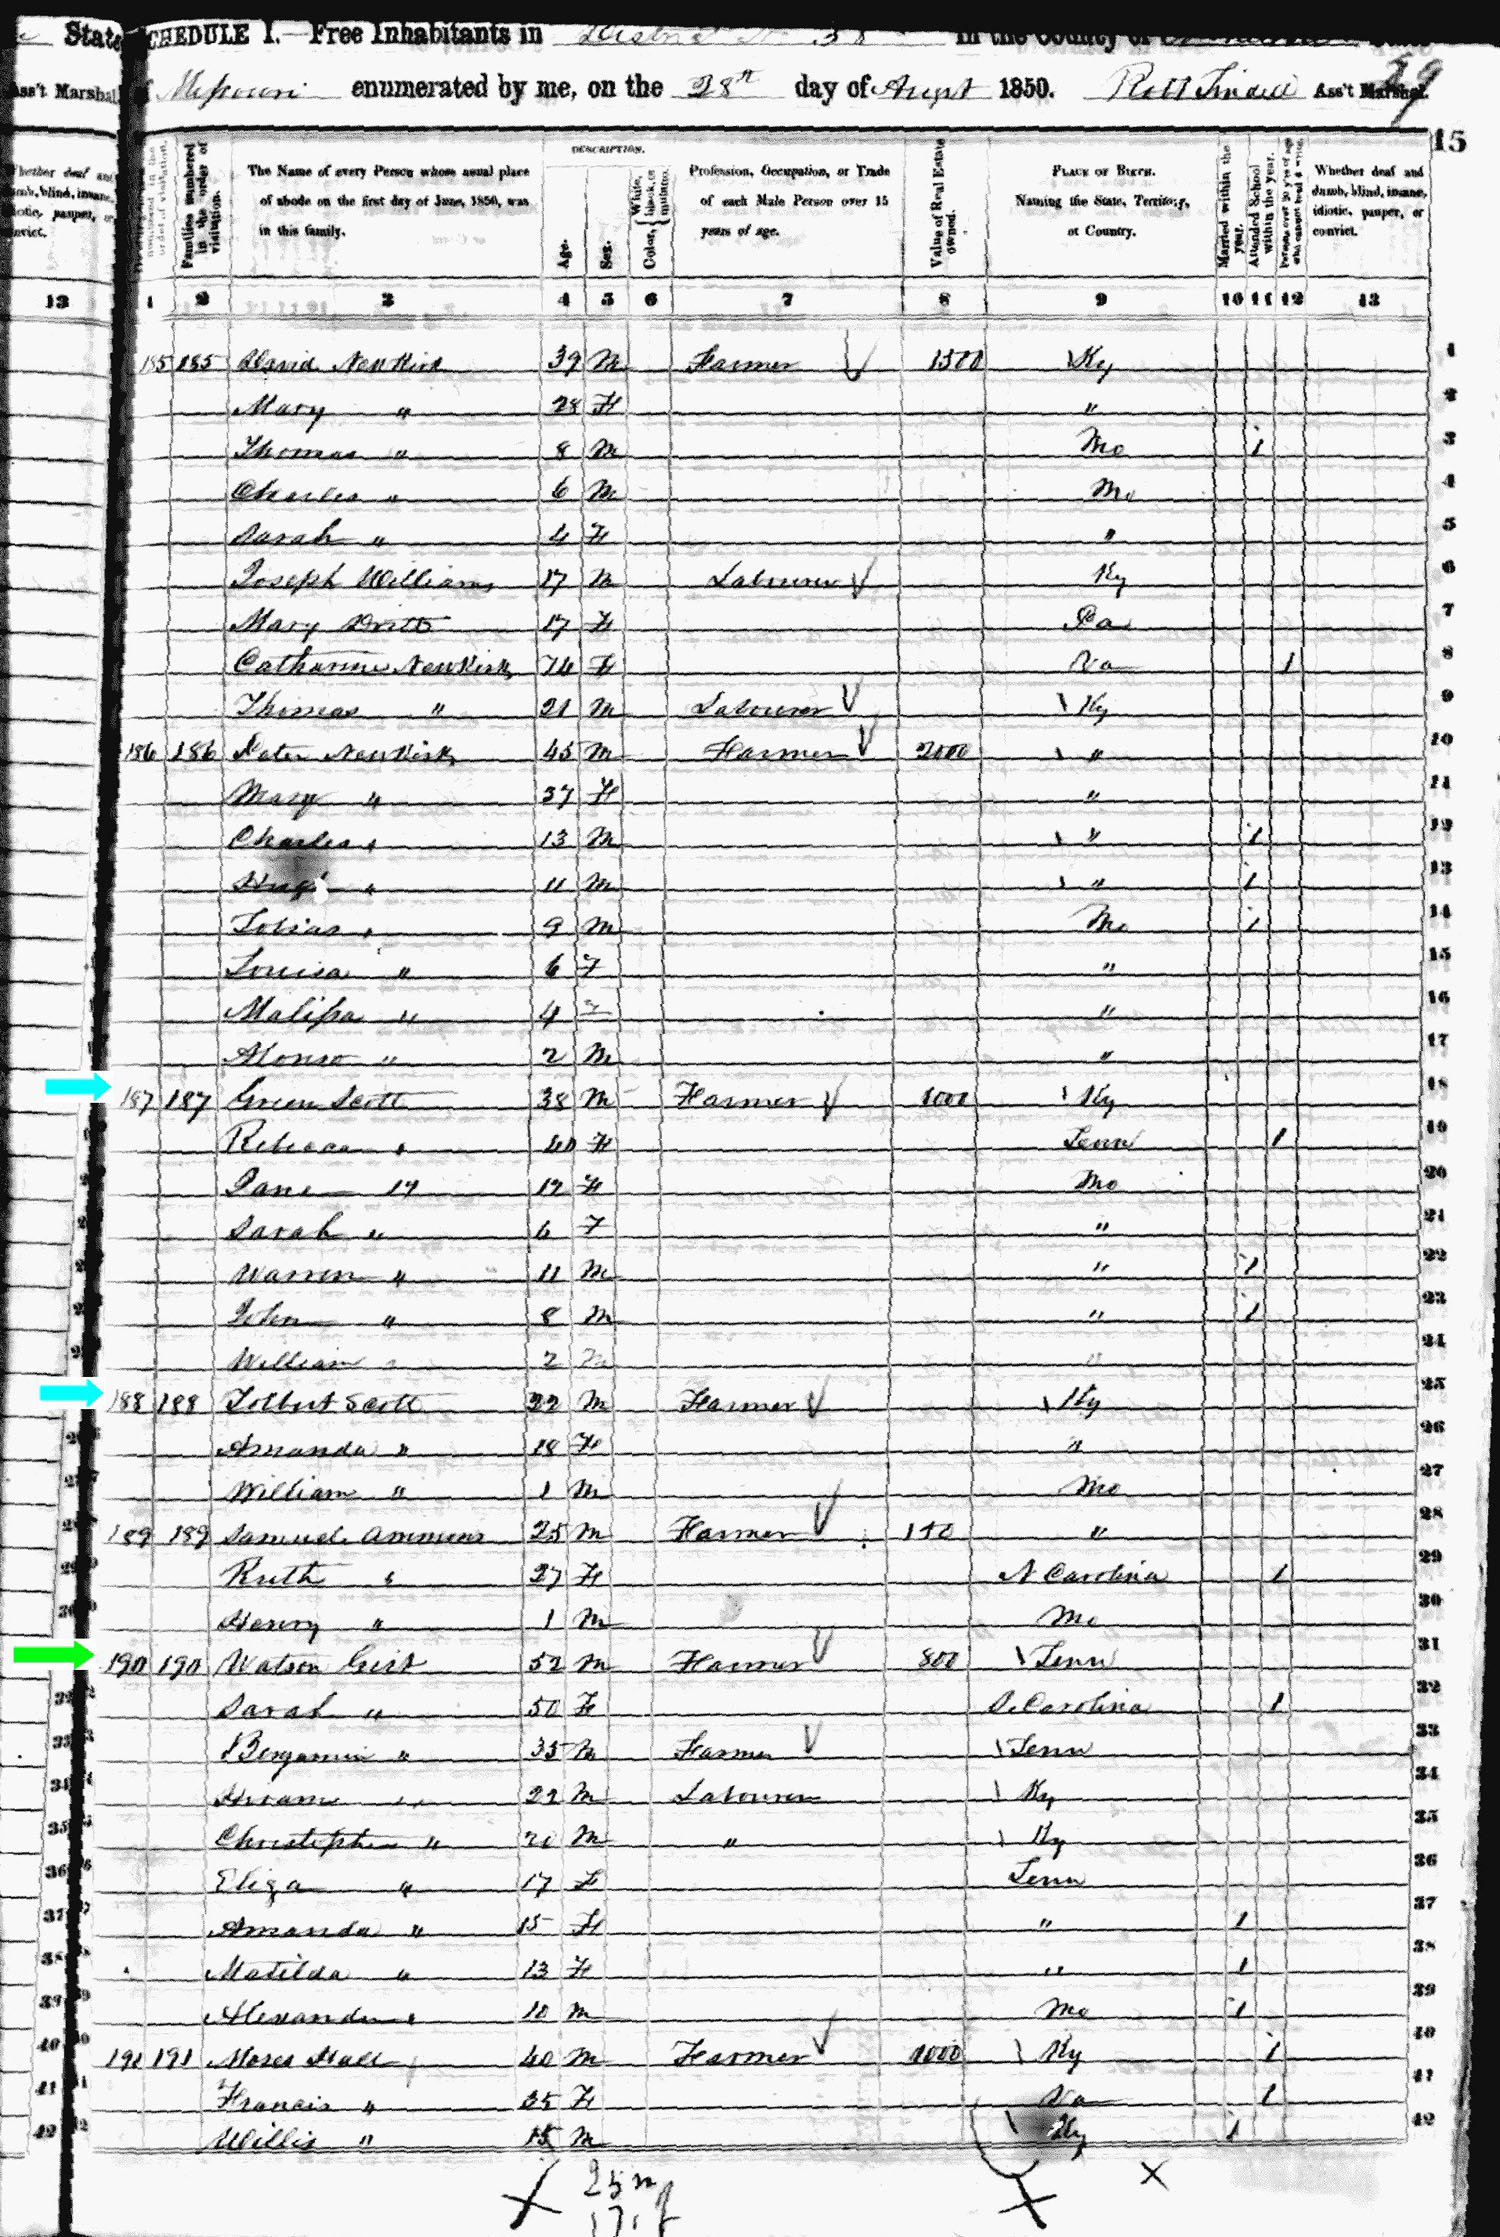 State SCHEDULE I.—Free Inhabitants in District No 38 in the County of State
Ass't Marshal of Missouri enumerated by me, on the 28th day of August 1850. Ass't Marshal.
29
15
DESCRIPTION.
Whether deaf and dumb, blind, insane, idiotic, pauper, or convict.
Families numbered in the order of visitation.
The Name of every Person whose usual place of abode on the first day of June, 1850, was in this family.
Age.
Sex.
Color, White, black, or mulatto.
Profession, Occupation, or Trade of each Male Person over 15 years of age.
Value of Real Estate owned.
PLACE OF BIRTH. Naming the State, Territory, or Country.
Married within the year.
Attended School within the year.
Persons over 20 y'rs of age who cannot read & write.
Whether deaf and dumb, blind, insane, idiotic, pauper, or convict.
13 1 2 3 4 5 6 7 8 9 10 11 12 13
185 185 David NewKirk 39 M Farmer 1500 Ky 1
Mary " 28 F " 2
Thomas " 8 M Mo 1 3
Charles " 6 M Mo 4
Sarah " 4 F " 5
Joseph Williams 17 M Labourer Ky 6
Mary 17 F Pa 7
Catharine NewKirk 74 F Va 1 8
Thomas " 21 M Labourer Ky 9
186 186 Peter NewKirk 45 M Farmer 2000 " 10
Mary " 37 F " 11
Charles " 13 M " 1 12
" 11 M " 1 13
Tobias " 9 M Mo 1 14
Louisa " 6 F " 15
Malissa " 4 F " 16
Alonso " 2 M " 17
187 187 Green Scott 38 M Farmer 1000 Ky 18
Rebecca " 40 F Tenn 1 19
Jane 17 F Mo 20
Sarah " 6 F " 21
Warren " 11 M " 1 22
John " 8 M " 1 23
William " 2 M " 24
188 188 Tolbert Scott 22 M Farmer Ky 25
Amanda " 18 F " 26
William " 1 M Mo 27
189 189 Samuel Ammons 25 M Farmer 150 " 28
Ruth " 27 F N Carolina 1 29
Henry " 1 M Mo 30
190 190 Watson Gist 52 M Farmer 800 Tenn 31
Sarah " 50 F S. Carolina 1 32
Benjamin " 35 M Farmer Tenn 33
Hiram " 22 M Labourer Ky 34
Christopher " 20 M " Ky 35
Eliza " 17 F Tenn 36
Amanda " 15 F " 1 37
Matilda " 13 F " 1 38
Alexander " 10 M Mo 1 39
191 191 Moses Hall 40 M Farmer 1000 Ky 1 40
Francis " 35 F Va 1 41
Willis " 15 M Ky 1 42
25 m
17 f